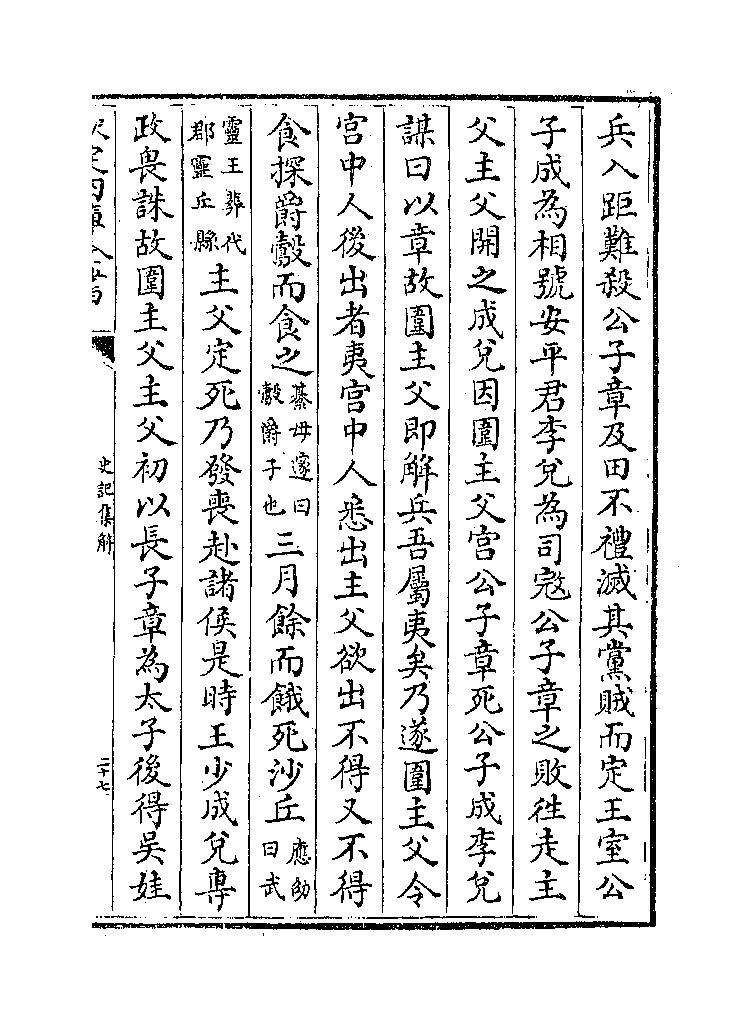 兵入距難殺公子章及田不禮滅其黨賊而定王室公
子成為相號安平君李兌為司宼公子章之敗徃走主
父主父開之成兌因圍主父宫公子章死公子成李兌
謀曰以章故圍主父即解兵吾屬夷矣乃遂圍主父令
宫中人後出者夷宫中人悉出主父欲出不得又不得
食探爵鷇而食之綦母邃曰鷇爵子也三月餘而餓死沙丘應劭曰武
靈王葬代郡靈丘縣主父定死乃發喪赴諸侯是時王少成兌專
政畏誅故圍主父主父初以長子章為太子後得吳娃
史記集解
二十七